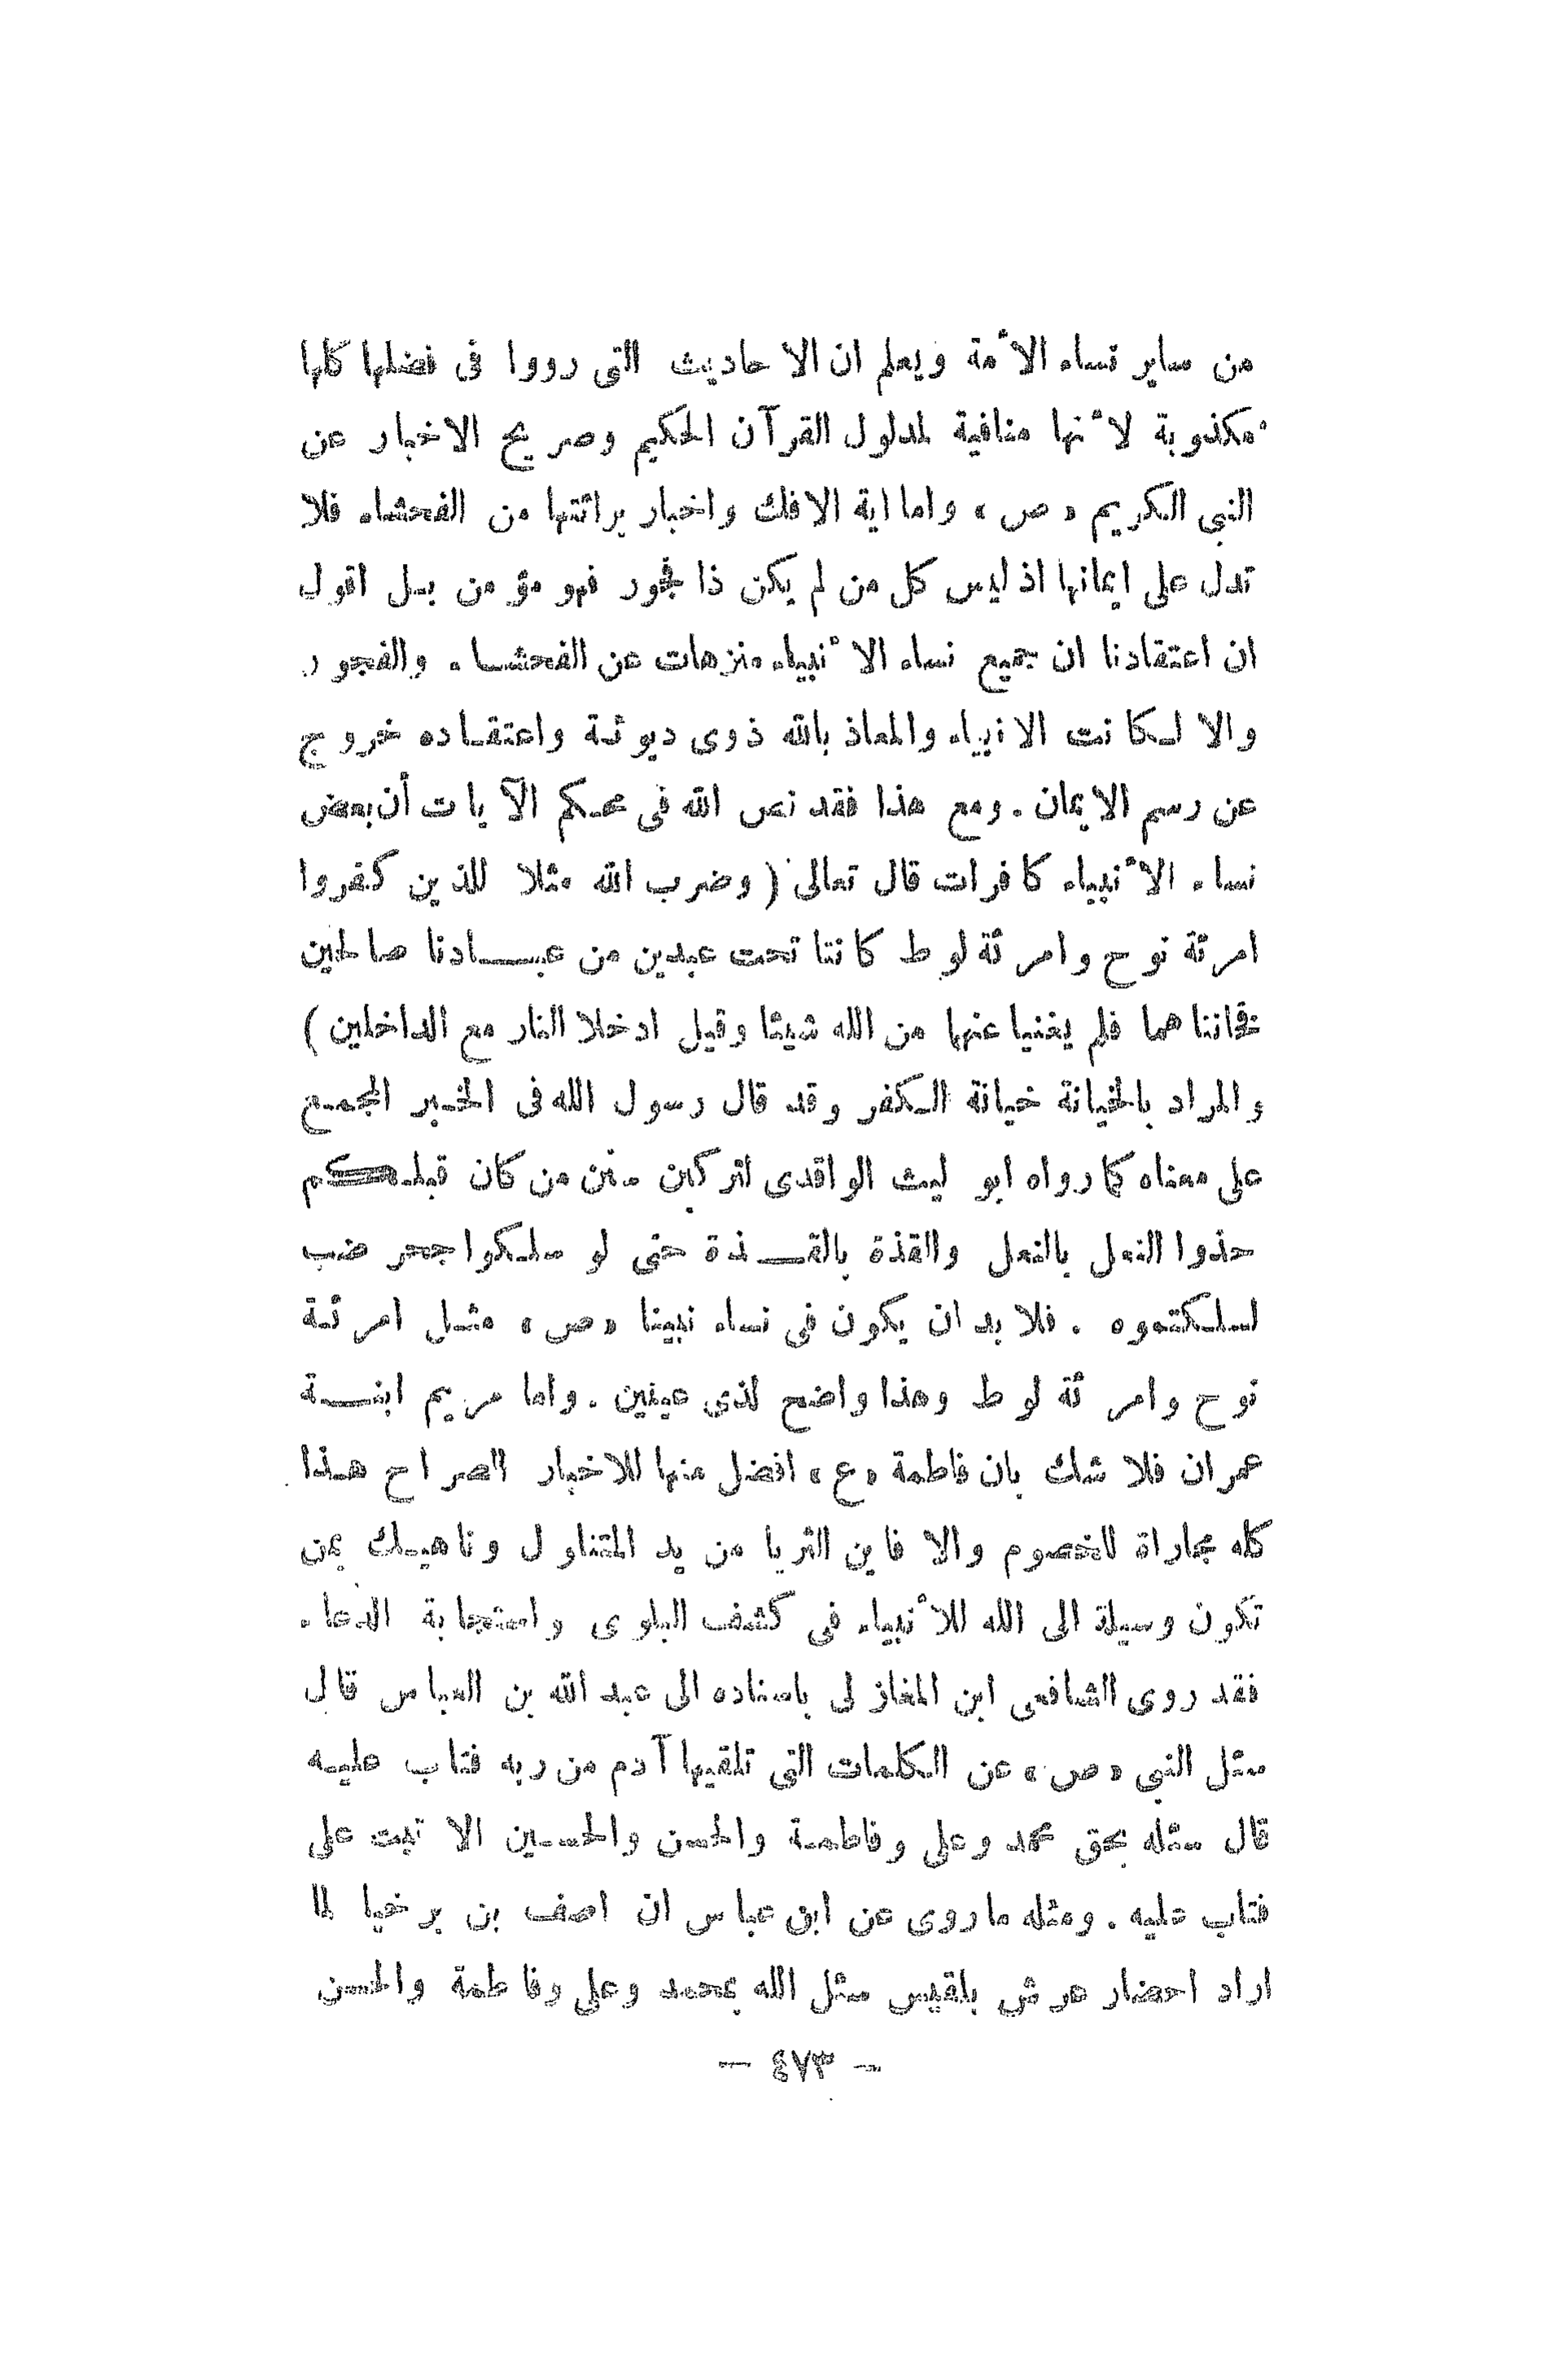 من ساير نساء الأمة ويعلم ان الاحاديث التى رووا فى فضلها كلها
مكذوبة لأنها منافية لمدلول القرآن الحكيم وصريح الاخبار عن
النبى الكريم «ص» واما اية الافك واخبار برائتها من الفحشاء فلا
تدل على ايمانها اذ ليس كل من لم يكن ذا فجور فهو مؤمن بل اقول
ان اعتقادنا ان جميع نساء الأنبياء منزهات عن الفحشاء والفجور
والا لكانت الانبياء والمعاذ بالله ذوى ديوثة واعتقاده خروج
عن رسم الايمان . ومع هذا فقد نص الله فى محكم الآيات أن بعض
نساء الأنبياء كافرات قال تعالى ( وضرب الله مثلا للذين كفروا
امرئة نوح وامرئة لوط كانتا تحت عبدين من عبادنا صالحين
فخانتاهما فلم يغنيا عنهما من الله شيئا وقيل ادخلا النار مع الداخلين )
والمراد بالخيانة خيانة الكفر وقد قال رسول الله فى الخبر المجمع
على معناه كما رواه ابو ليث الواقدى لتركبن سنن من كان قبلكم
حذوا النعل بالنعل والقذة بالقذة حتى لو سلكوا جحر ضب
لسلكتموه . فلا بد ان يكون فى نساء نبينا «ص» مثل امرئة
نوح وامرئة لوط وهذا واضح لذى عينين . واما مريم ابنة
عمران فلا شك بان فاطمة «ع» افضل منها للاخبار الصراح هذا
كله مجاراة للخصوم والا فاين الثريا من يد المتناول وناهيك بمن
تكون وسيلة الى الله للأنبياء فى كشف البلوى واستجابة الدعاء .
فقد روى الشافعى ابن المغازلى باسناده الى عبد الله بن العباس قال
سئل النبى «ص» عن الكلمات التى تلقيها آدم من ربه فتاب عليه
قال سئله بحق محمد وعلى وفاطمة والحسن والحسين الا تبت على
فتاب عليه . ومثله ماروى عن ابن عباس ان اصف بن برخيا لما
اراد احضار عرش بلقيس سئل الله بمحمد وعلى وفاطمة والحسن
— ٤٧٣ —